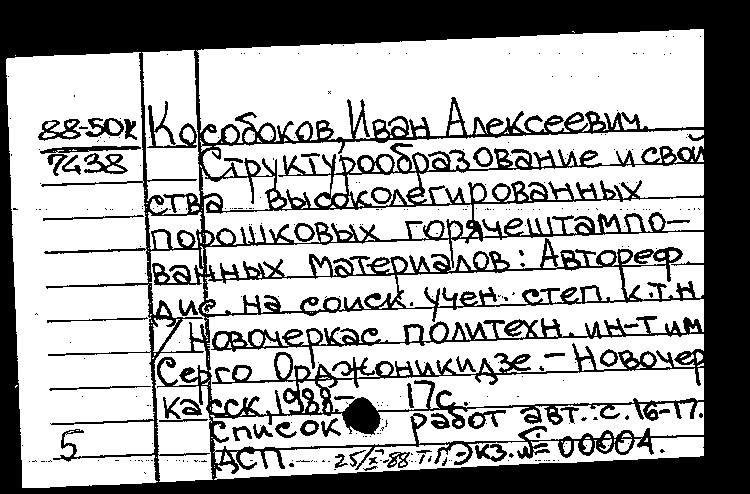 88-50к
7438
Кособоков, Иван Алексеевич.
Структурообразование и свой
ства высоколегированных
порошковых горячештампо-
ванных материалов: Автореф.
дис. на соиск. учен. степ. к.т.н.
/Новочеркас. политехн. ин-т им
Серго Орджоникидзе.- Новочер
касск, 1988.- 17с.
Список работ авт.: с. 16-17.
ДСП. 25/X-88 Т.П. Экз. № 00004.
5